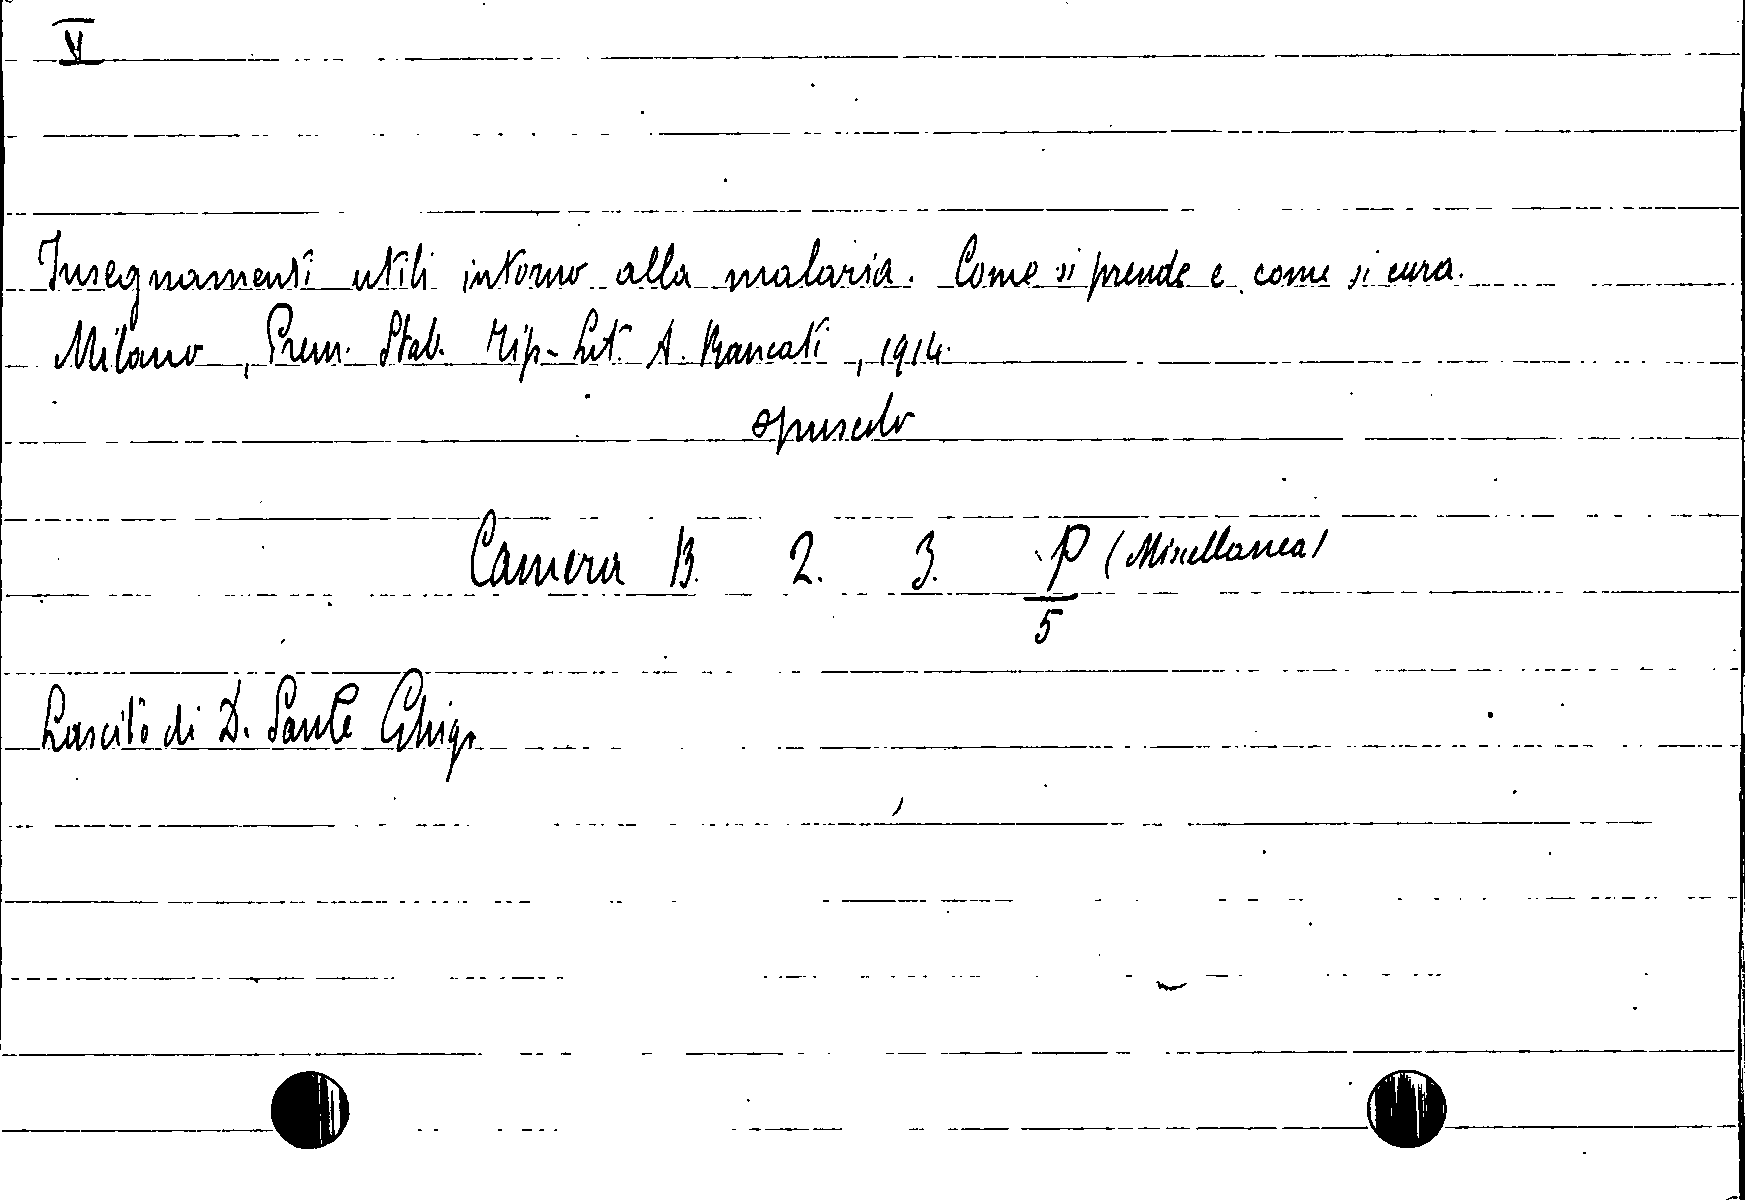 V
Insegnamenti utili intorno alla malaria. Come si prende e come si cura.
Milano, Prem. Stab. Tip-Lit. A. Rancati, 1914.
opuscolo
Camera B. 2. 3. P (Miscellanea)
5
Lascito di D. Sante Ghigo